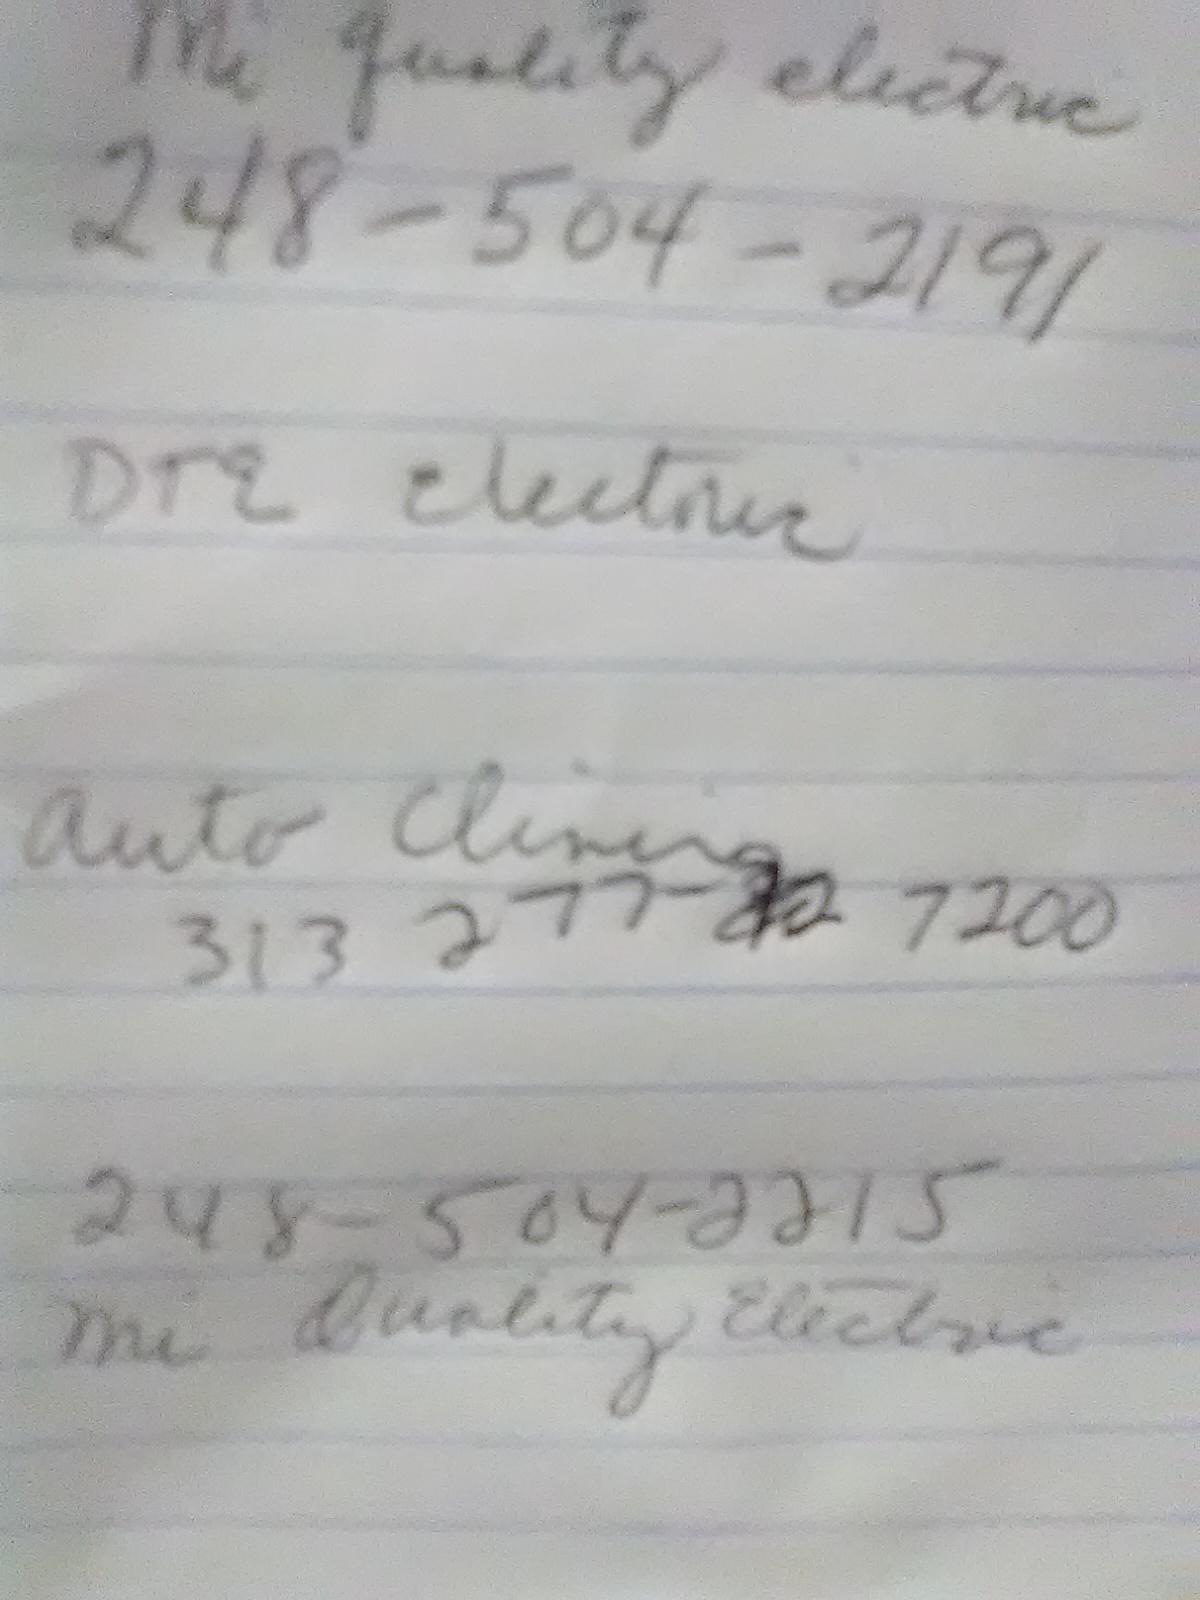 Mi quality electric
248-504-2191
DTE electric
auto
313 277- 7200
248-504-2215
Mi Quality Electric